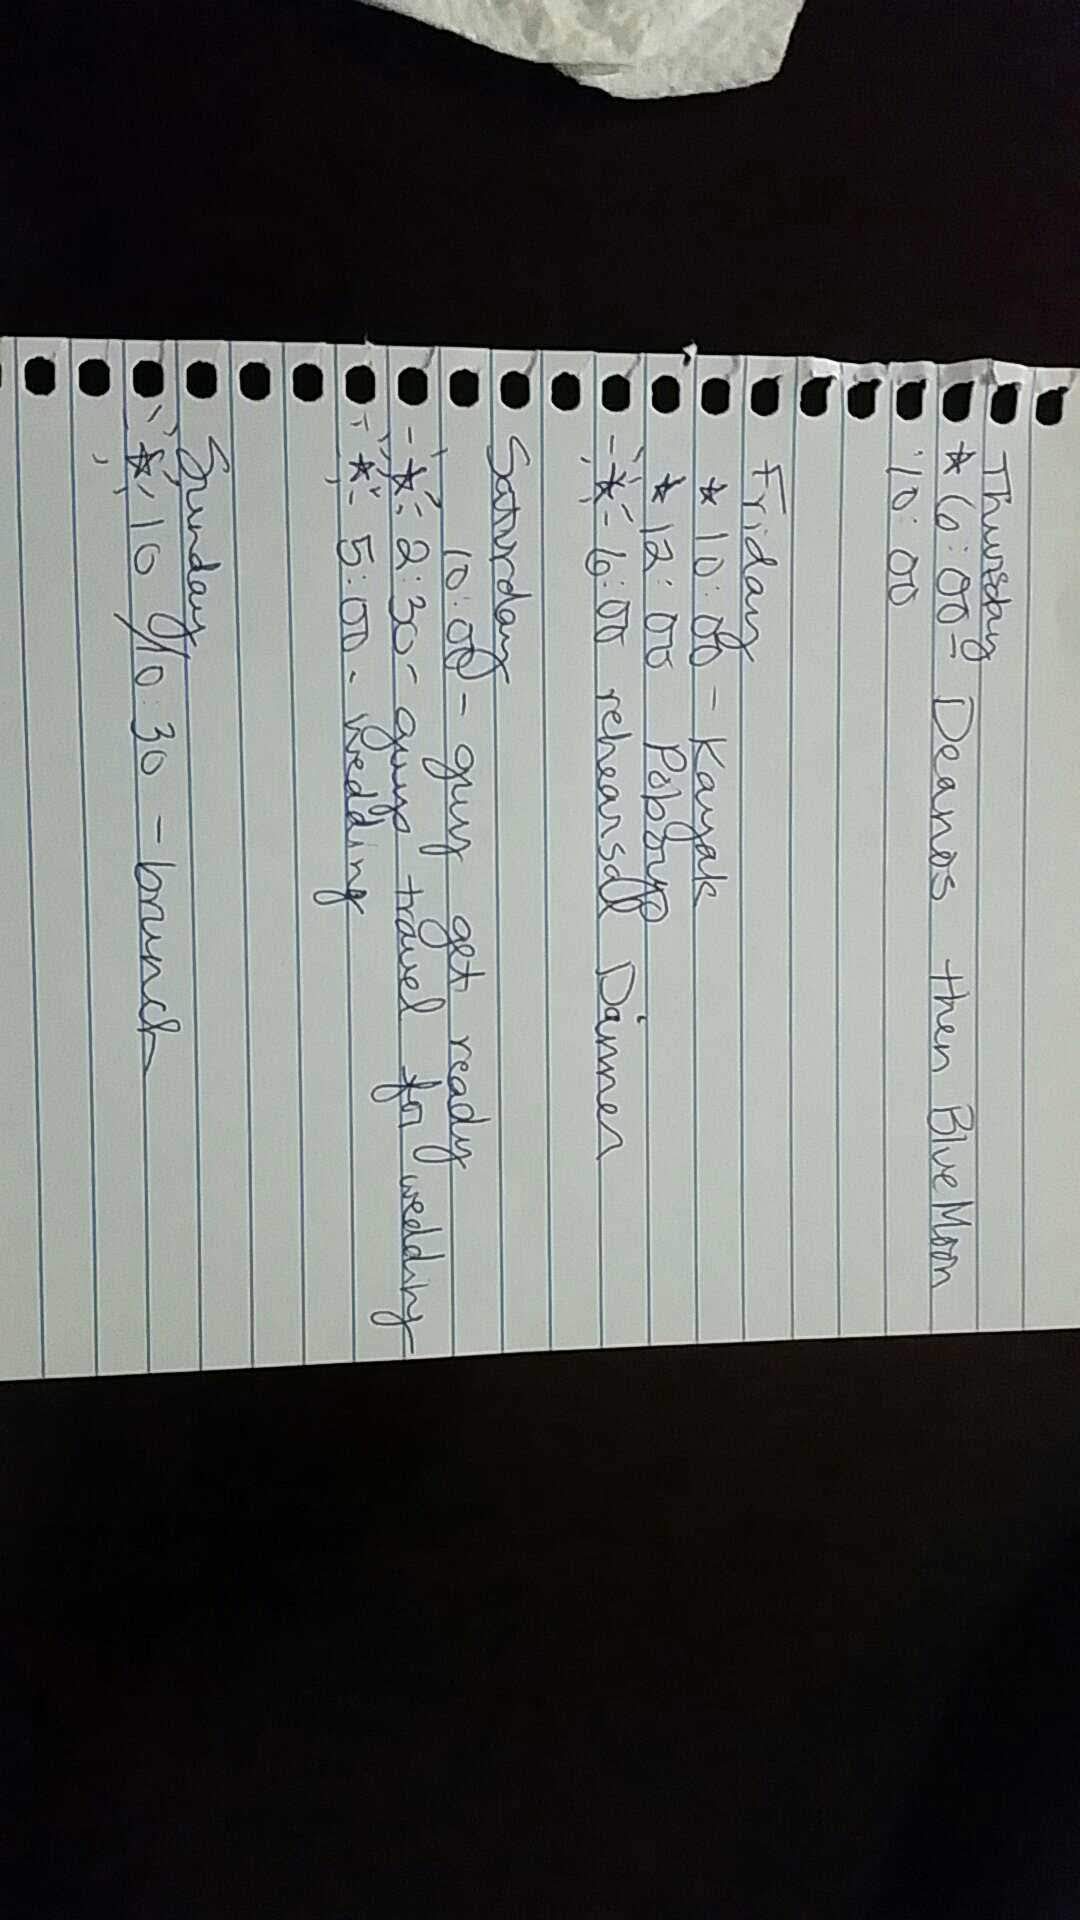 Thursday
* 6:00 - Deanos then Blue Moon
10:00
Friday
* 10:00 - Kayak
* 12:00 Poboys
-*- 6:00 rehearsall Dinner
Saturday
10:00 - guy get ready
-*- 2:30 - guys travel for wedding
-*- 5:00 - wedding
Sunday
-*- 10/10:30 - brunch